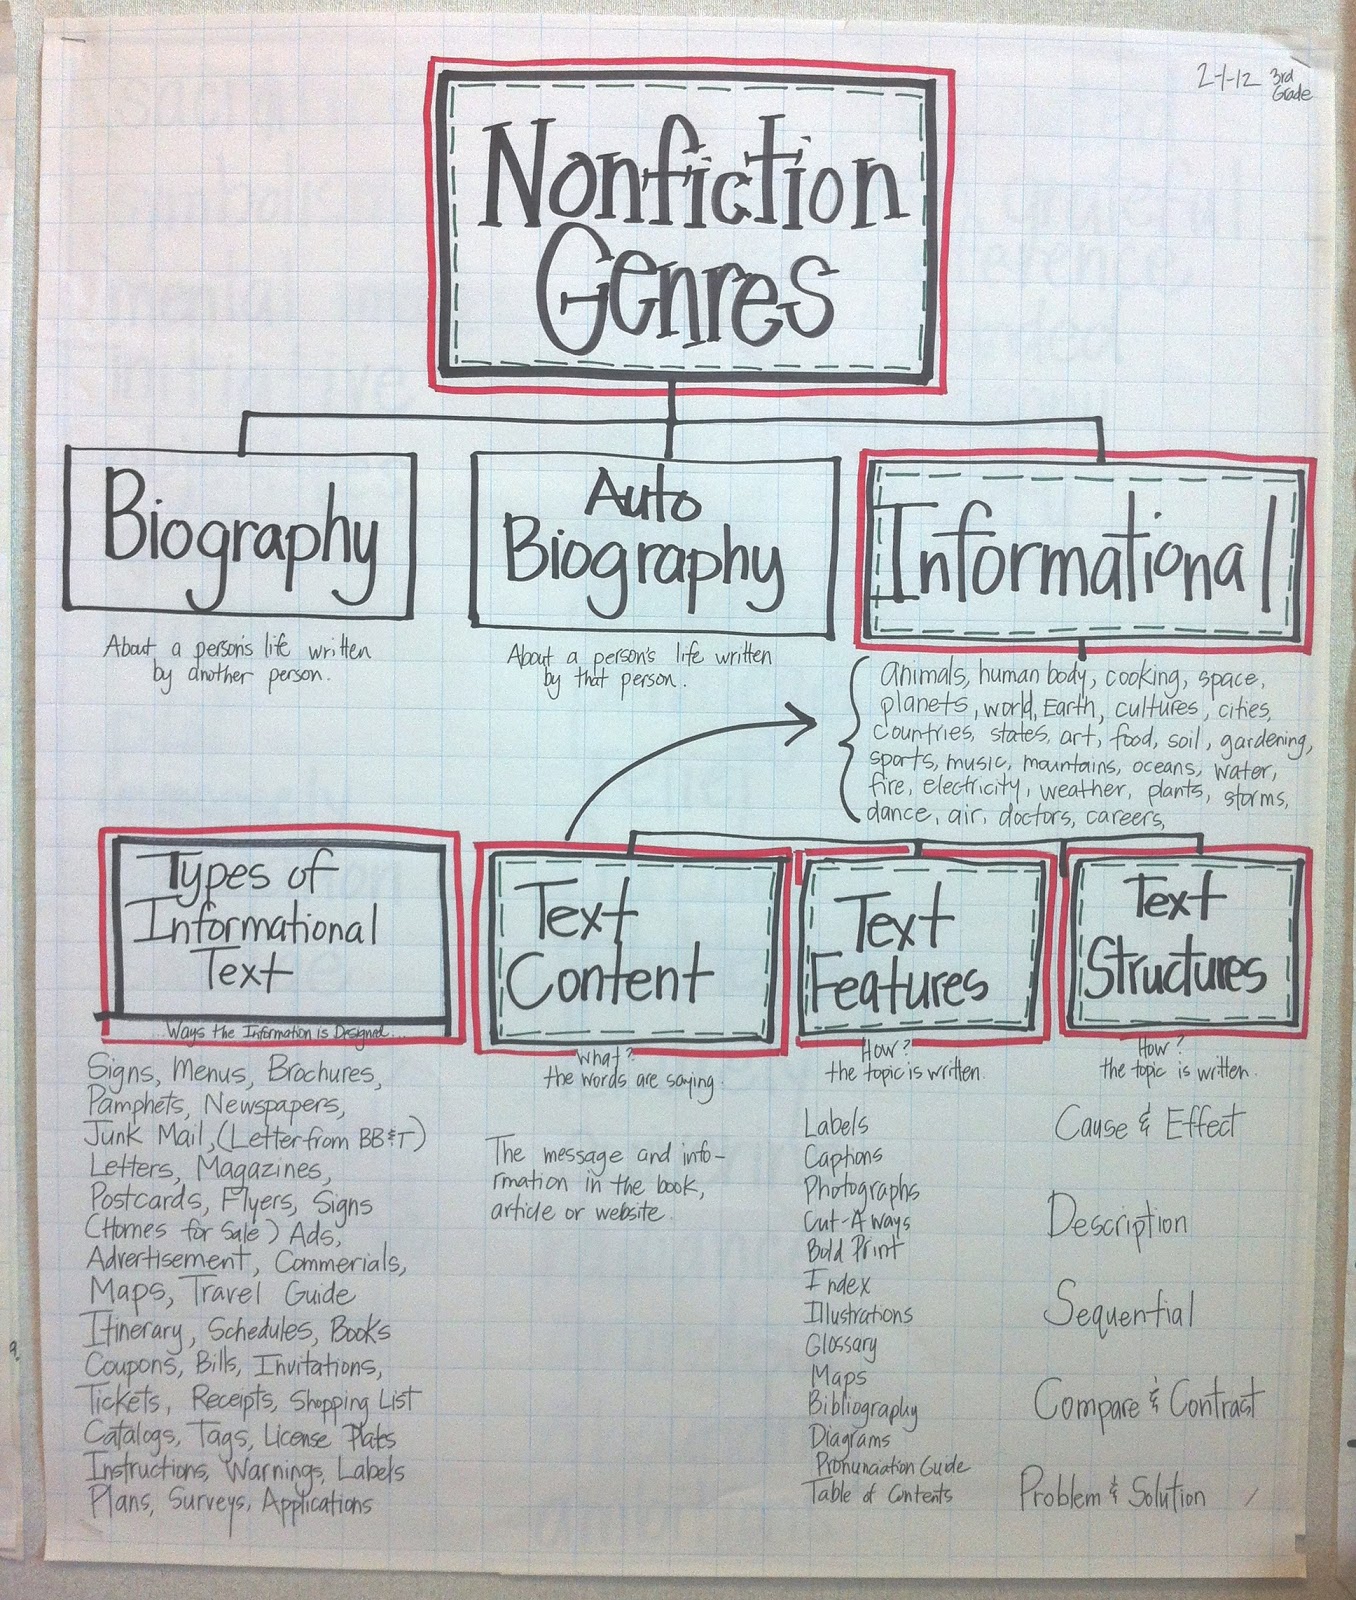 2-1-12 3rd
Grade
Nonfiction
Genres
Biography
About a person's life written
by another person.
Auto
Biography
About a person's life written
by that person.
Informational
Animals, human body, cooking, space,
planets, world, Earth, cultures, cities,
countries, states, art, food, soil, gardening,
sports, music, mountains, oceans, water,
fire, electricity, weather, plants, storms,
dance, air, doctors, careers,
Types of
Informational
Text
...Ways the Information is Designed...
Signs, Menus, Brochures,
Pamphets, Newspapers,
Junk Mail, (Letter from BB&T)
Letters, Magazines,
Postcards, Flyers, Signs
(Homes for Sale) Ads,
Advertisement, Commerials,
Maps, Travel Guide
Itinerary, Schedules, Books
Coupons, Bills, Invitations,
Tickets, Receipts, Shopping List
Catalogs, Tags, License Plates
Instructions, Warnings, Labels
Plans, Surveys, Applications
Text
Content
What?
the words are saying.
The message and info-
rmation in the book,
article or website.
Text
Features
How?
the topic is written.
Labels
Captions
Photographs
Cut-Aways
Bold Print
Index
Illustrations
Glossary
Maps
Bibliography
Diagrams
Pronunciation Guide
Table of Contents
Text
Structures
How?
the topic is written.
Cause & Effect
Description
Sequential
Compare & Contrast
Problem & Solution